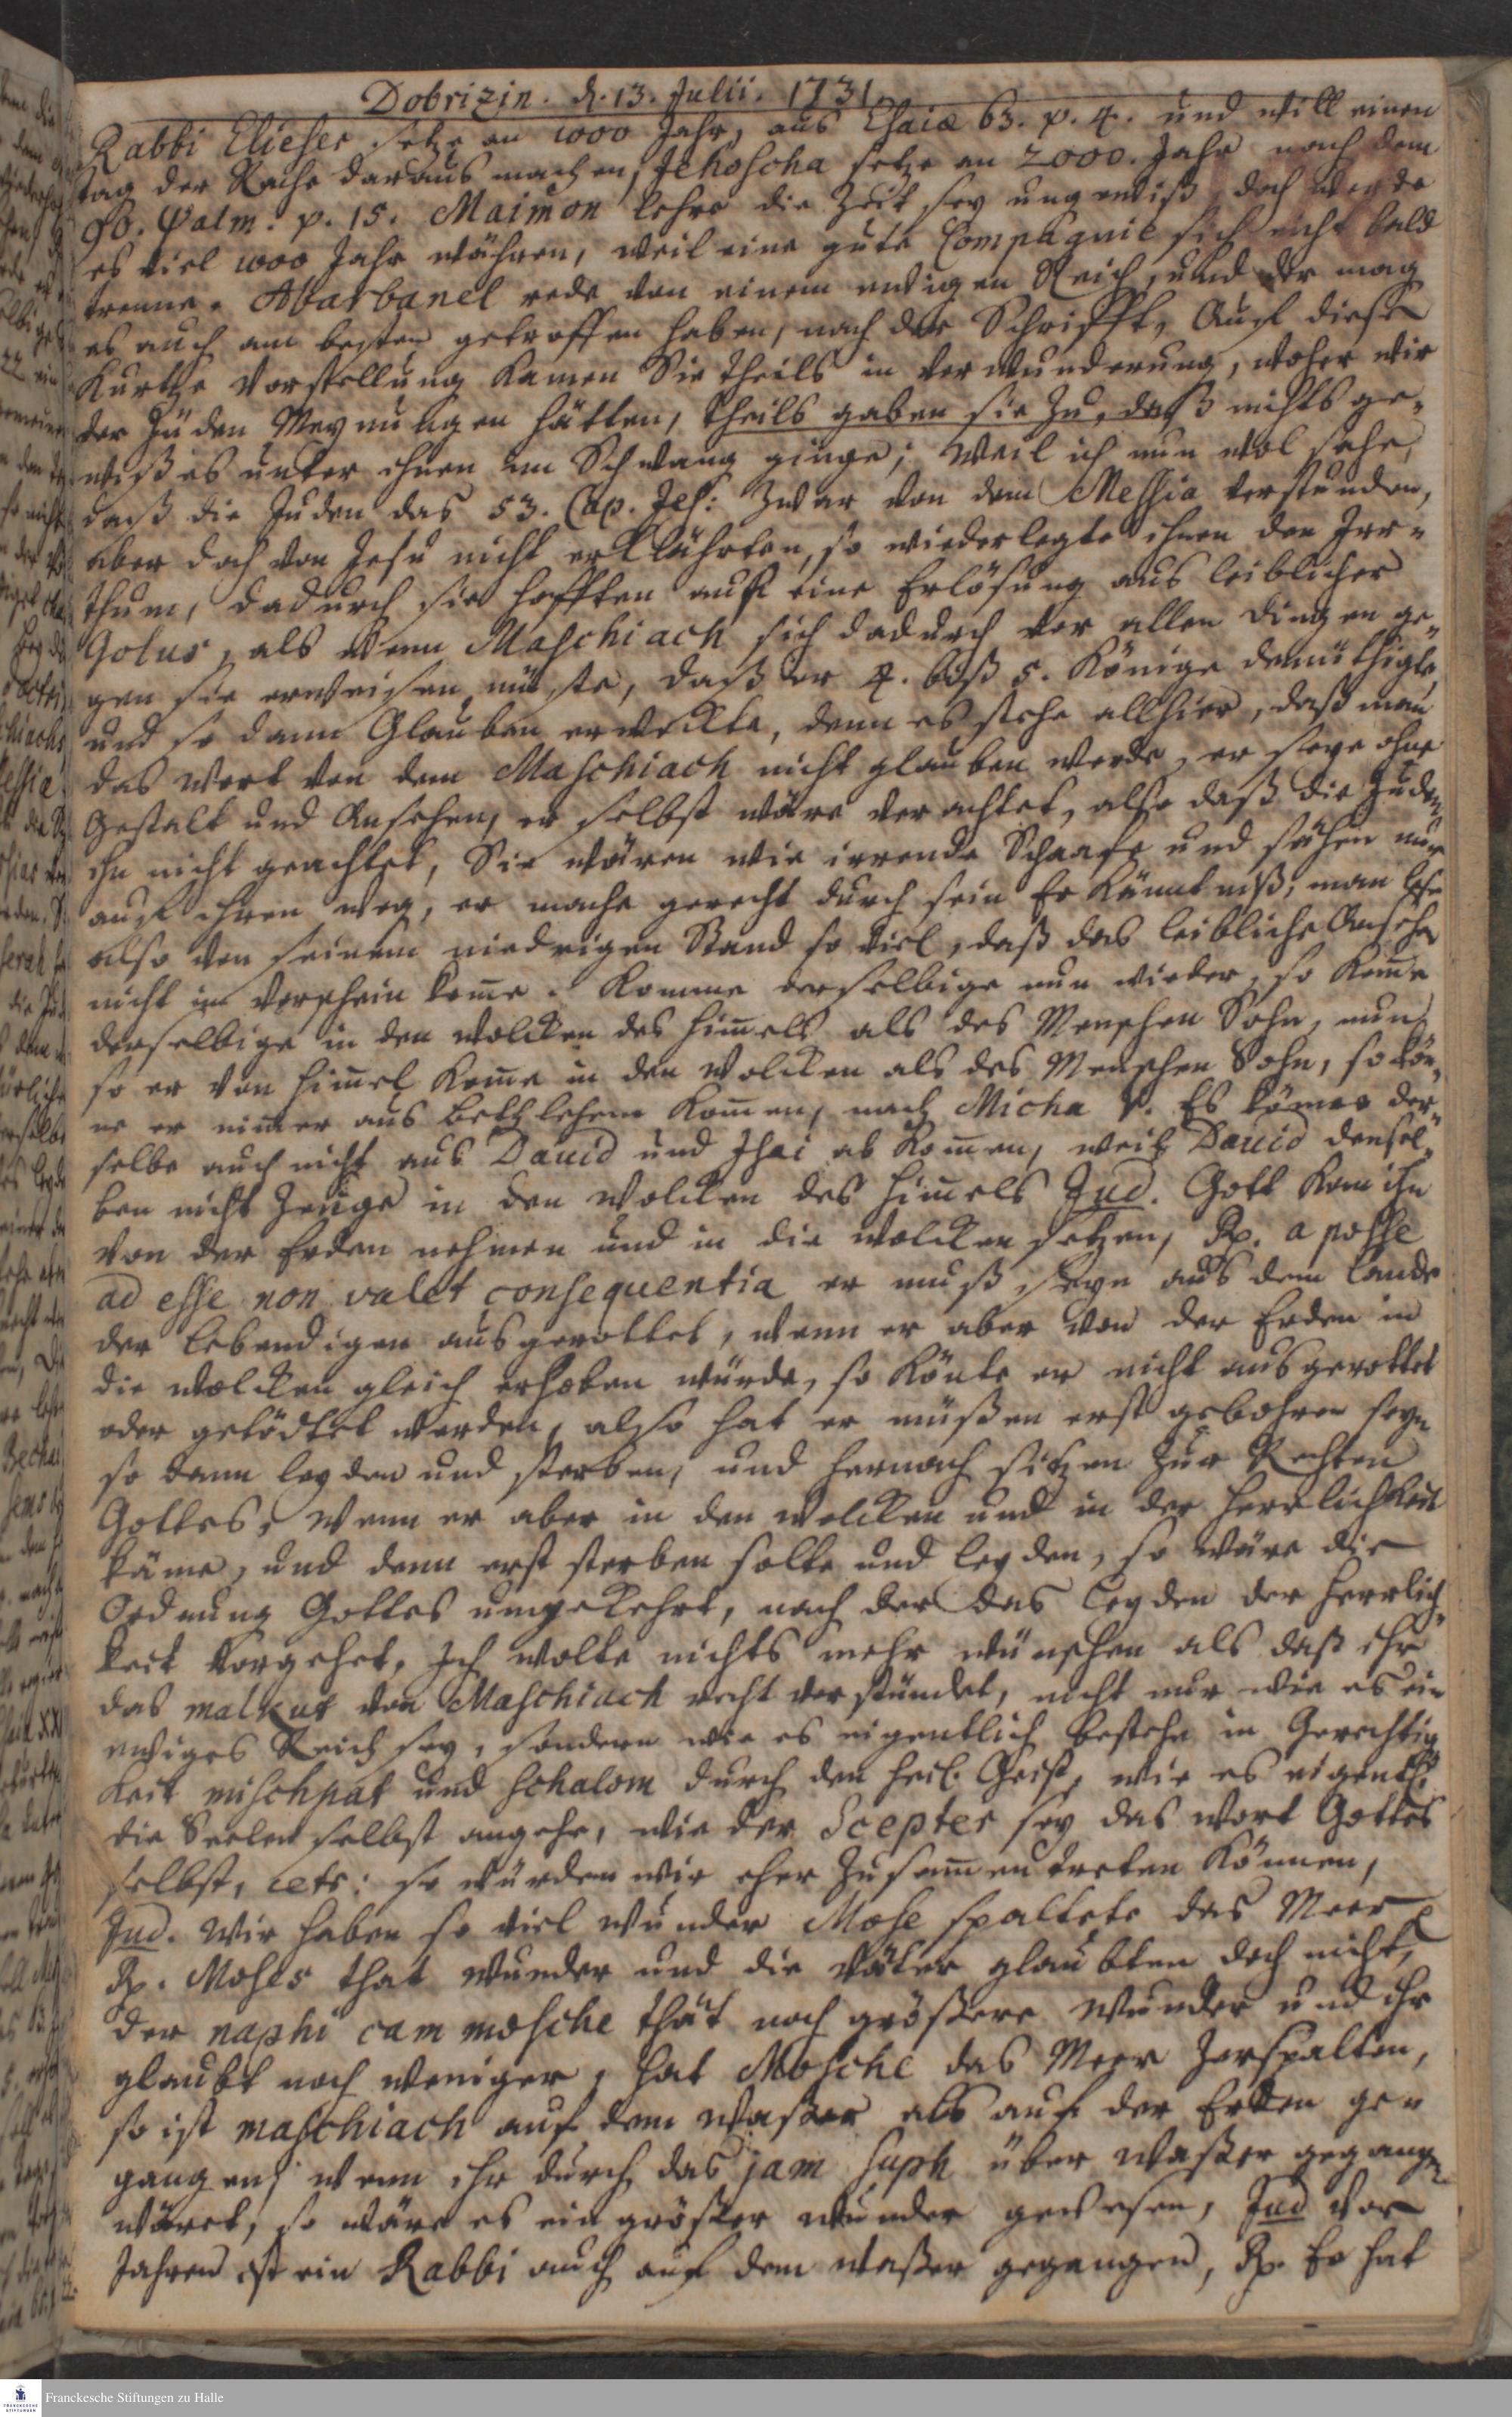 Dobrizin. d. 13. Julii. 1731.
Rabbi Elieser setze an 1000 Jahr, aus Esaiæ 63. p. 4. und will einen
tag der Rache daraus machen, Jehoscha setze an 2000. Jahr nach dem
90. Psalm. p. 15. Maimon lehre die Zeit sey ungewiß, doch werde
es viel 1000 Jahr währen, weil eine gute Compagnie sich nicht bald
trenne. Abarbanel rede von einem ewigen Reich, und der mag
es auch am besten getroffen haben, nach der Schrifft, Auf diese
Kurtze Vorstellung kamen Sie theils in verwunderung, woher wir
der Jüden Meynungen hätten, theils gaben sie zu, daß nichts ge-
wißes unter ihnen im Schwang ginge; Weil ich nun wol sahe,
daß die Juden das 53. Cap. Jes: zwar von dem Messia verstunden,
aber doch von Jesu nicht erklährten, so wiederlegte ihnen den Irr-
thum, dadurch sie hofften auf eine Erlösung aus leiblicher
Golus, als wenn Maschiach sich dadurch vor allen dingen ge-
gen sie erweisen müste, daß er 4. biß 5. Könige demüthigte,
und so dann Glauben erweckte, denn es stehe allhier, daß man
das wort von dem Maschiach nicht glauben werde, er seye ohne
Gestalt und Ansehen, er selbst wäre verachtet, also daß die Juden
ihn nicht geachtet, Sie wären wie irrende Schaafe und sähen nur
auf ihren weg, er mache gerecht durch sein Erkänntniß, man lese
also von seinem niedrigen Stand so viel, daß das leibliche Ansehen
nicht im Vorschein kom̅e. Komme derselbige nun wieder, so kom̅e
derselbige in den wolcken des him̅els als des Menschen Sohn, nun
so er von him̅el kom̅e in den wolcken als des Menschen Sohn, so kön-
ne er nim̅er aus Bethlehem kom̅en, nach Micha V. Es könne der-
selbe auch nicht aus David und Isai ab kom̅en, weil David densel-
ben nicht zeuge in den wolcken des him̅els Jud. Gott kan ihn
von der Erden nehmen und in die wolcken setzen, Rp. a posse
ad esse non valet consequentia er muß seyn aus dem Lande
der lebendigen ausgerottet, wenn er aber von der Erden in
die wolcken gleich erhoben würde, so könte er nicht ausgerottet
oder getödtet werden, also hat er müßen erst gebohren seyn
so dann leyden und sterben, und hernach sitzen zur Rechten
Gottes, wenn er aber in den wolcken und in der herrlichkeit
käme, und denn erst sterben solte und leyden, so wäre die
Ordnung Gottes umgekehrt, nach der das leyden der herrlich-
keit vorgehet, Ich wolte nichts mehr wünschen als daß ihr
das malkut von Maschiach recht verstündet, nicht nur wie es ein
ewiges Reich sey, sondern wie es eigentlich bestehe in Gerechtig-
keit mischpat und schalom durch den heil. Geist, wie es eigentl.
die Seelen selbst angehe, wie der Scepter sey das wort Gottes
selbst, cets: so würden wir eher zusam̅en treten können,
Jud. Wir haben so viel wunder Mose spaltete das Meer
Rp. Moses that wunder und die väter glaubten doch nicht,
der naphi cam mosche thät noch größere wunder und ihr
glaubt noch weniger, hat Mosche das Meer zerspalten,
so ist maschiach auf dem waßer als auf der Erden ge-
gangen, wenn ihr durch das jam suph über waßer gegangen
wäret, so wäre es ein größer wunder gewesen, Jud vor
Jahren ist ein Rabbi auch auf dem waßer gegangen, Rp. Er hat
Franckesche Stiftungen zu Halle